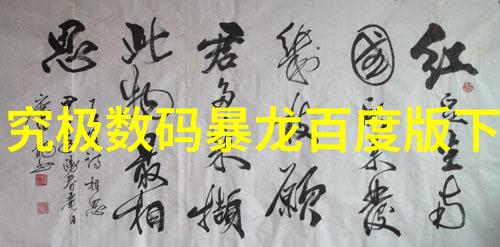 究极数码暴龙百度版下
红豆生南
國春来發
幾枝願
君多采撷
此物最相
思